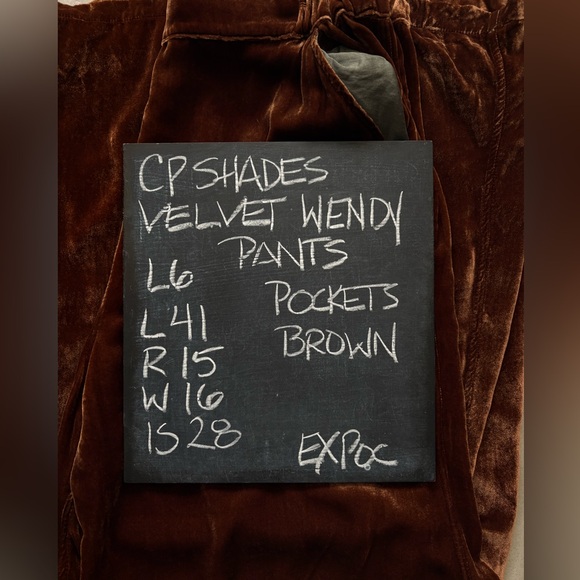 CP SHADES
VELVET WENDY
PANTS
L6
L 41
R 15
W 16
IS 28
POCKETS
BROWN